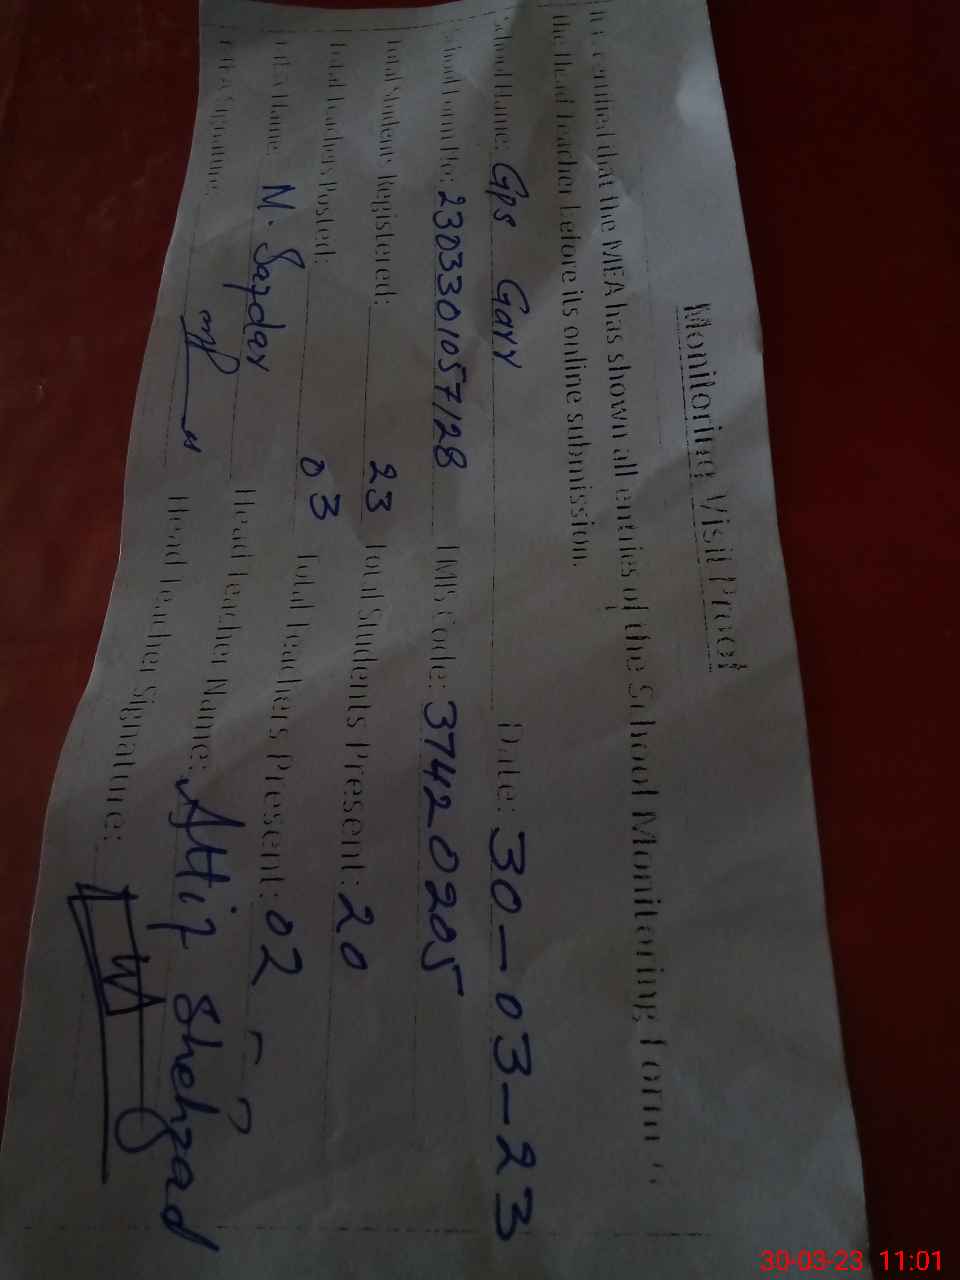 Monitoring Visit Proof
It is certified that the MEA has shown all entries of the School Monitoring Form
the Head Teacher before its online submission.
School Name: Gps Garr Date: 30-03-23
School Form No: 2303301057128 EMIS Code: 37420205
Total Students Registered: 23 Total Students Present: 20
Total Teachers Posted: 03 Total Teachers Present: 02
MEA Name: M. Safdar Head Teacher Name: Attiq Shehzad
MEA Signature: Head Teacher Signature:
30-03-23 11:01